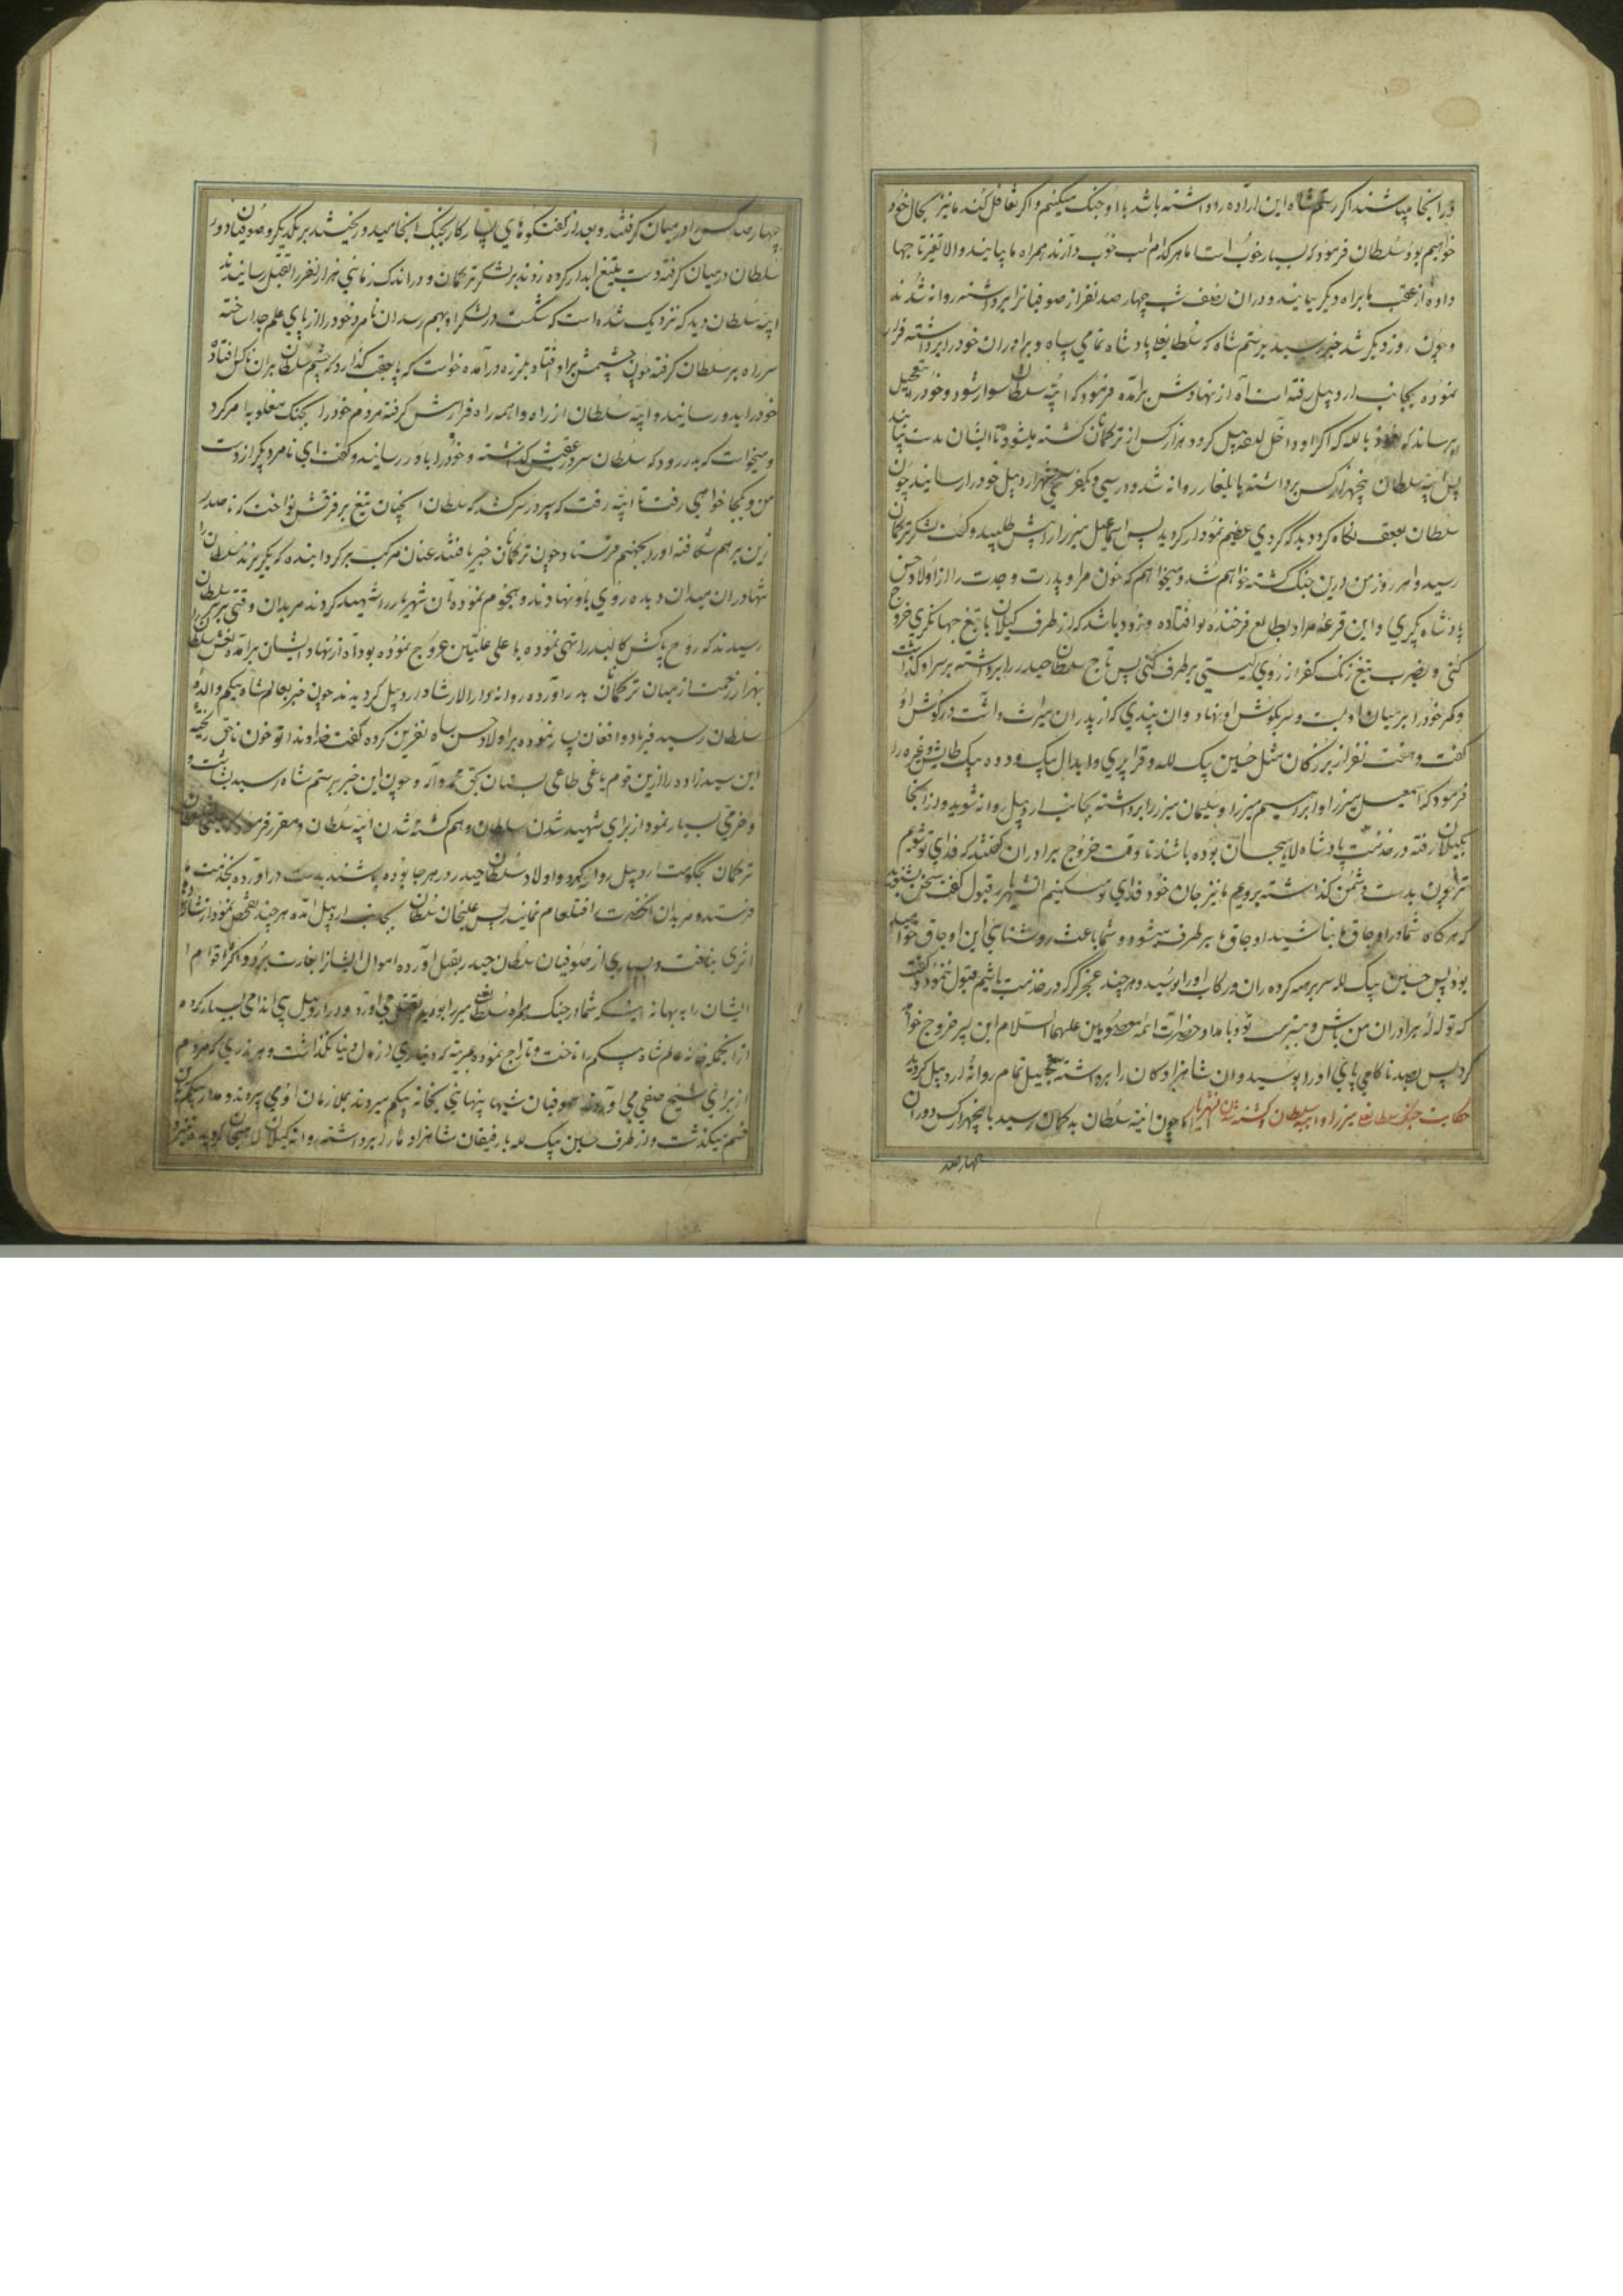 در آنجا میباشند اگر رستم شاه این اراده را داشته باشد با او جنک میکنیم و اکر تغافل کند ما نیز بحال خود
خواهیم بود سلطان فرمود که بسیار خوب است اما هر کدام اسب خوب دارند همراه ما بیایند و الا تغیر تاجها
داده از عقب ما براه دیکر بیایند و در ان نصف شب چهار صد نفر از صوفیانرا برداشته روانه شدند
و چون روز دیکر شد خبر رسید برستم شاه که سلطانعلی پادشاه تمامی سپاه و برادران خود را برداشته فرار
نموده بجانب اردبیل رفته است آه از نهادش برآمده فرمود که ایبه سلطان سوار شود و خود را بتعجیل
برساند که نعوذ بالله که اکر او داخل اردبیل کردد هزار کس از ترکمانان کشته میشود تا ایشان بدست بیایند
پس ایبه سلطان پنجهزار کس برداشته بایلغار روانه شد و در سی و یکفرسخی شهر اردبیل خود را رسانید چون
سلطان بعقب نکاه کرد دید که کردی عظیم نمودار کردید پس اسماعیل میرزا را پیش طلبید و کفت لشکر ترکمان
رسید و امروز من درین جنک کشته خواهم شد و میخواهم که خون مرا و پدرت و جدت را از اولاد حسن
پادشاه بکیری و این قرعه مراد بطالع فرخنده تو افتاده و زود باشد که از طرف کیلان با تیغ جهانکیری خروج
کنی و بضرب تیغ زنک کفر از روی کیتی بر طرف کنی پس تاج سلطان حیدر را برداشته بر سر او کذاشت
و کمر خود را بر میان او بست و سر بکوش او نهاد و ان پندی که از پدران میراث داشت در کوش او
کفت و هفت نفر از بزرکان مثل حسین بیک لله و قرا پیری و ابدال بیک و دده بیک طالش و غیره را
فرمود که اسمعیل میرزا و ابراهیم میرزا و سلیمان میرزا را برداشته بجانب اردبیل روانه شوید و از آنجا
بکیلان رفته در خدمت پادشاه لاهیجان بوده باشند تا وقت خروج برادران کفتند که فدای تو شویم
ترا چون بدست دشمن کذاشته برویم ما نیز جان خود فدای تو میکنیم انشهریار قبول نکفت سخن بشنوید
که هر کاه شما در اوجاق ما نباشید اوجاق ما بر طرف میشود و شما باعث روشنائی این اوجاق خواهید
بود پس حسین بیک لله سر برهنه کرده ران و رکاب او را بوسید و هر چند عجز کرد که در خدمت باشیم قبول ننمود و کفت
که تو لله برادران من باش و ببر که تو با مداد حضرات ائمه معصومین علیهم السلام این پسر خروج خواهد
کرد پس بصد ناکامی پای او را بوسید و ان شاهزادکان را برداشته بتعجیل تمام روانه اردبیل کردید
حکایت جنک سلطانعلی میرزا و ایبه سلطان و کشته شدن شهریار اما چون ایبه سلطان به ترکمان رسید با پنجهزار کس دور ان
چهار صد
چهار صد کس را در میان کرفتند و بعد از کفتکوهای بسیار کار بجنک انجامید و ریختند بر یکدیکر و صوفیان دور
سلطان در میان کرفته دست بتیغ ابدار کرده زدند بر لشکر ترکمان و در اندک زمانی هزار نفر را بقتل رسانیدند
ایبه سلطان دید که نزدیک شده است که شکست در لشکر او بهم رسد ان نامرد خود را از پای علم جدا ساخته
سر راه بر سلطان کرفته چون چشمش بر او افتاد بلرزه درآمده خواست که پا بعقب کذارد که چشم سلطان بران ناکس افتاد
خود را بدو رسانید و ایبه سلطان از راه واهمه راه فرار پیش کرفته مردم خود را بجنک مغلوبه امر کرد
و میخواست که بدر رود که سلطان سر در عقبش کذاشته و خود را باو رسانید و کفت ای نامرد دیکر از دست
من و بکجا خواهی رفت تا ایبه رفت که سپر در سر کشد که سلطان انچنان تیغ بر فرقش نواخت که تا صدر
زین بر هم شکافته او را بجهنم فرستاد و چون ترکمانان خبر یافتند عنان مرکب بر کردانیده که بکریزند سلطانرا
تنها در ان میدان دیده روی باو نهادند و هجوم نموده ان شهریار را شهید کردند مریدان وقتی بر سر سلطان
رسیدند که روح پاکش کالبد را تهی نموده با علی علیین عروج نموده بود آه از نهاد ایشان برآمده نعش سلطان را
بهزار زحمت از میان ترکمانان بدر آورده روانه دارالارشاد اردبیل کردیدند چون خبر بعالمشاه بیکم والده
سلطان رسید فریاد و افغان بسیار نموده بر اولاد حسن پادشاه نفرین کرده کفت خداوندا تو خون ناحق ریخته
این سیدزاده را ازین قوم یاغی طاغی بستان بحق محمد و آله و چون این خبر برستم شاه رسید بشاشت و
و خرمی بسیار نمود از برای شهید شدن سلطان و هم کشته شدن ایبه سلطان و مقرر فرمود که علیخان
ترکمان بحکومت اردبیل روانه کردد و اولاد سلطان حیدر در هر جا بوده باشند بدست دراورده بخدمت ما
فرستد و مریدان انحضرت را قتلعام نمایند پس علیخان سلطان بجانب اردبیل آمده هر چند تفحص نمود از شاهزادها
اثری نیافت و بسیاری از صوفیان سلطان حیدر بقتل آورده اموال ایشانرا بغارت برد و اکثر اقوام
ایشان را به بهانه اینکه شما در جنک همراه سلطانعلی میرزا بودید بقتل می آورد و در اردبیل بی اندامی بسیار کرده
از انجمله خانه عالمشاه بیکم را تاخت و تاراج نموده بمرتبه که دیناری از مال دنیا نکذاشت و هر نذری که مردم
از برای شیخ صفی می آوردند صوفیان شبها پنهانی بخانه بیکم میبردند بملازمان او می سپردند و مدار بیکم بدان
قسم میکذشت و از طرف حسین بیک لله با رفیقان شاهزاده ها را برداشته روانه کیلان لاهیجان کردید